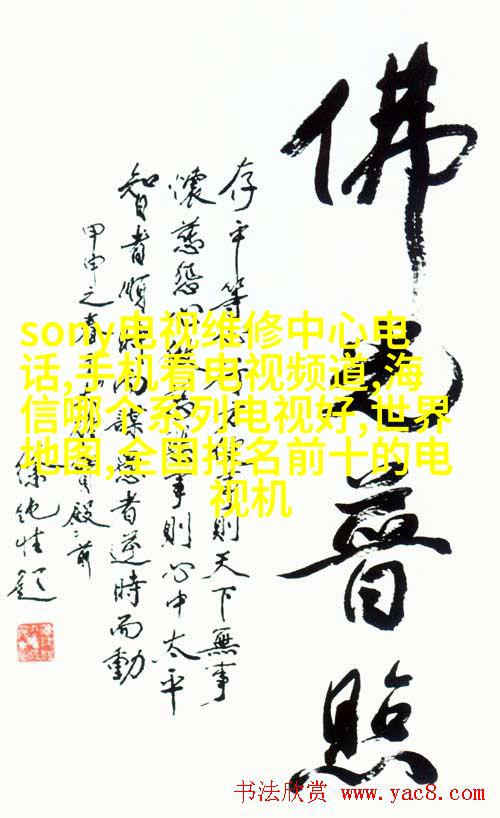 佛光普照
存平等心行方便事則天下無事
懷慈悲心做 事則心中太平
智者順時而謀愚者逆時而動
甲申之春 殿之前
徐純性題
sony电视维修中心电
话,手机看电视频道,海
信哪个系列电视好,世界
地图,全国排名前十的电
视机
书法欣赏 www.yac8.com